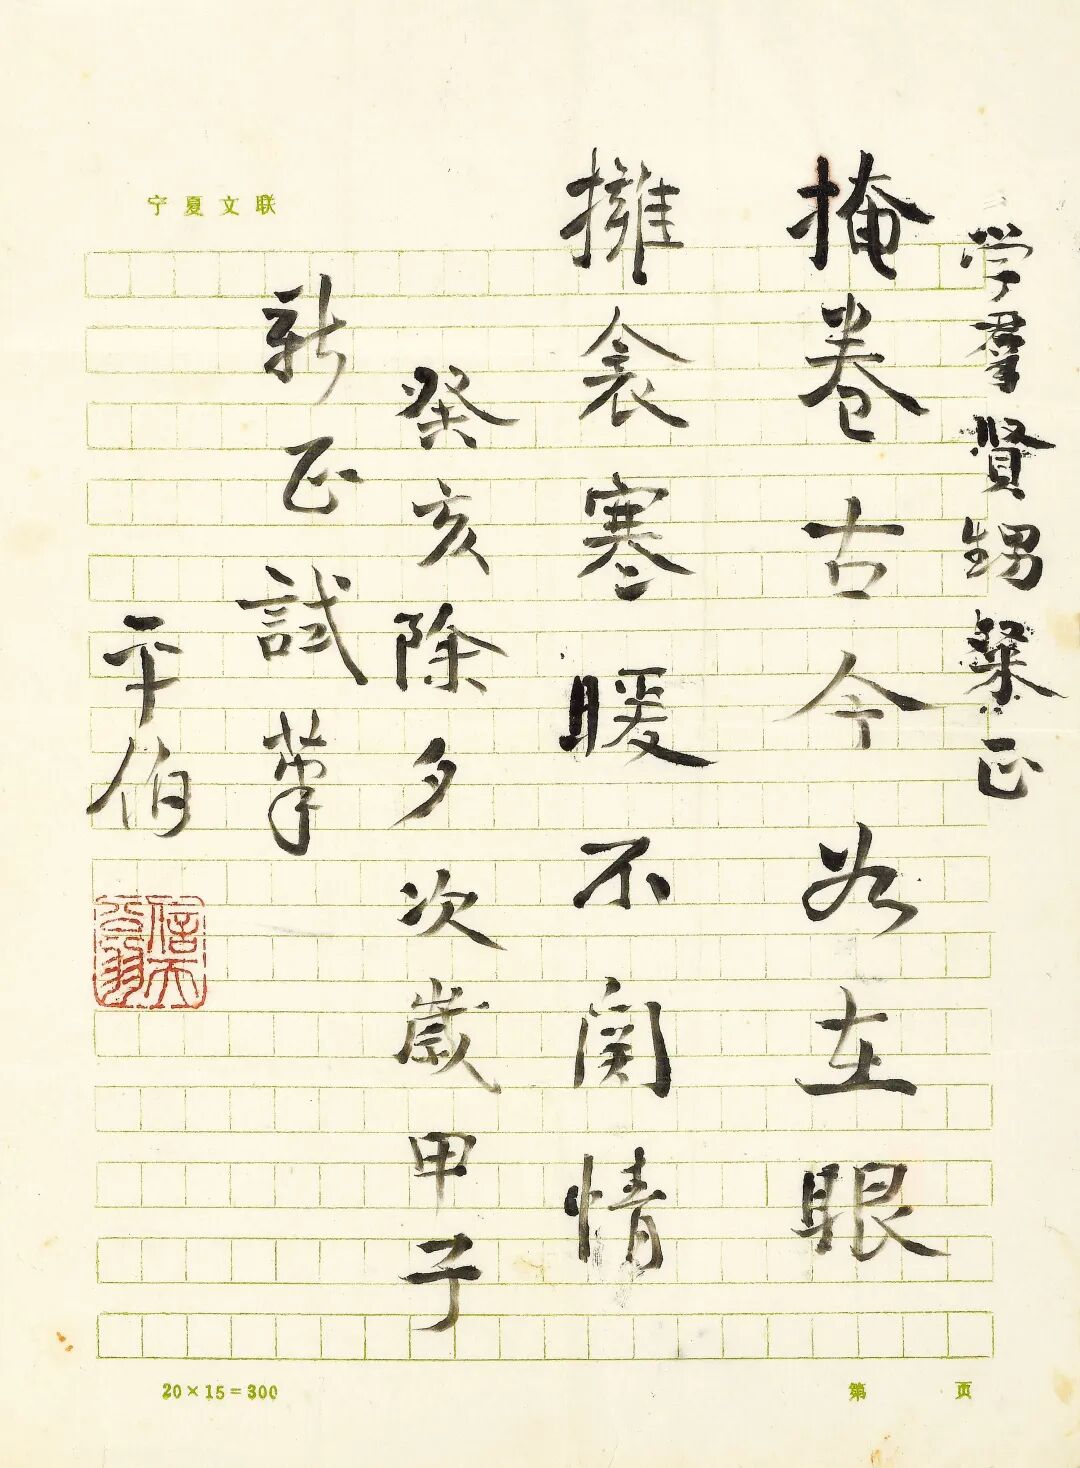 宁夏文联
学羣贤甥粲正
掩卷古今如在眼
擁衾寒暖不関情
癸亥除夕次歲甲子
新正試筆
平伯
信天翁
20×15=300
第 页